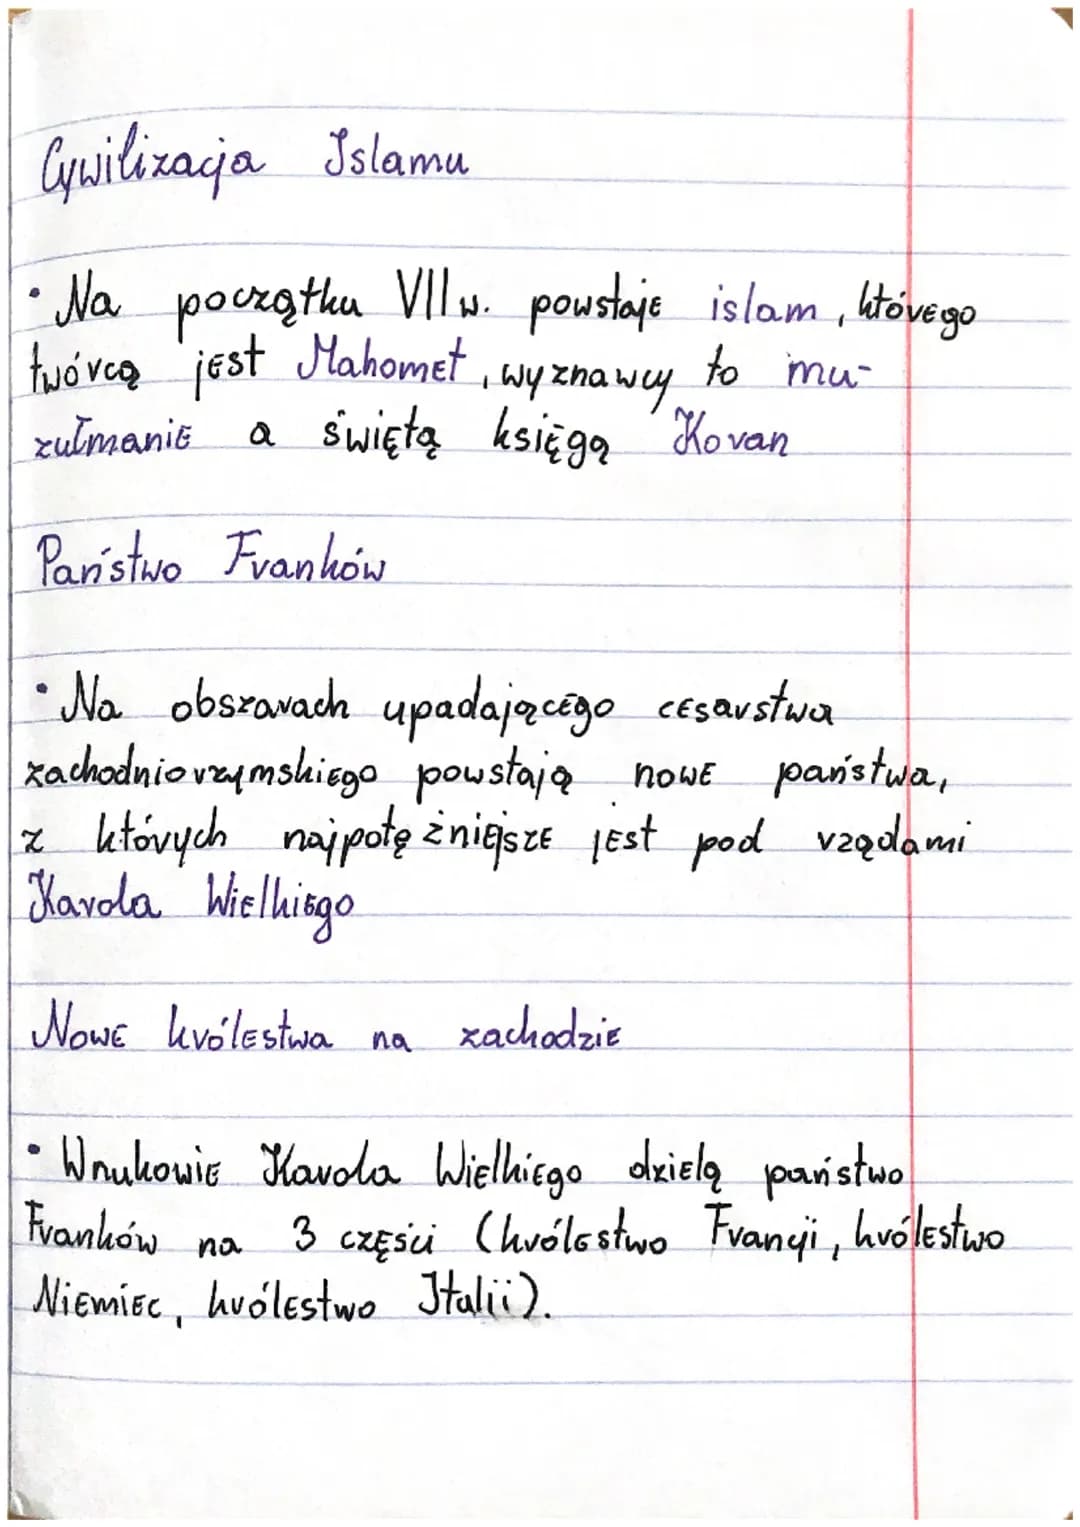 Cywilizacja Islamu
• Na początku VII w. powstaje islam, którego
twórcą jest Mahomet, wyznawcy to mu-
zułmanie a świętą księgą Koran
Państwo Franków
• Na obszarach upadającego cesarstwa
zachodniorzymskiego powstają nowe państwa,
z których najpotężniejsze jest pod rządami
Karola Wielkiego
Nowe królestwa na zachodzie
• Wnukowie Karola Wielkiego dzielą państwo
Franków na 3 części (królestwo Francji, królestwo
Niemiec, królestwo Italii).